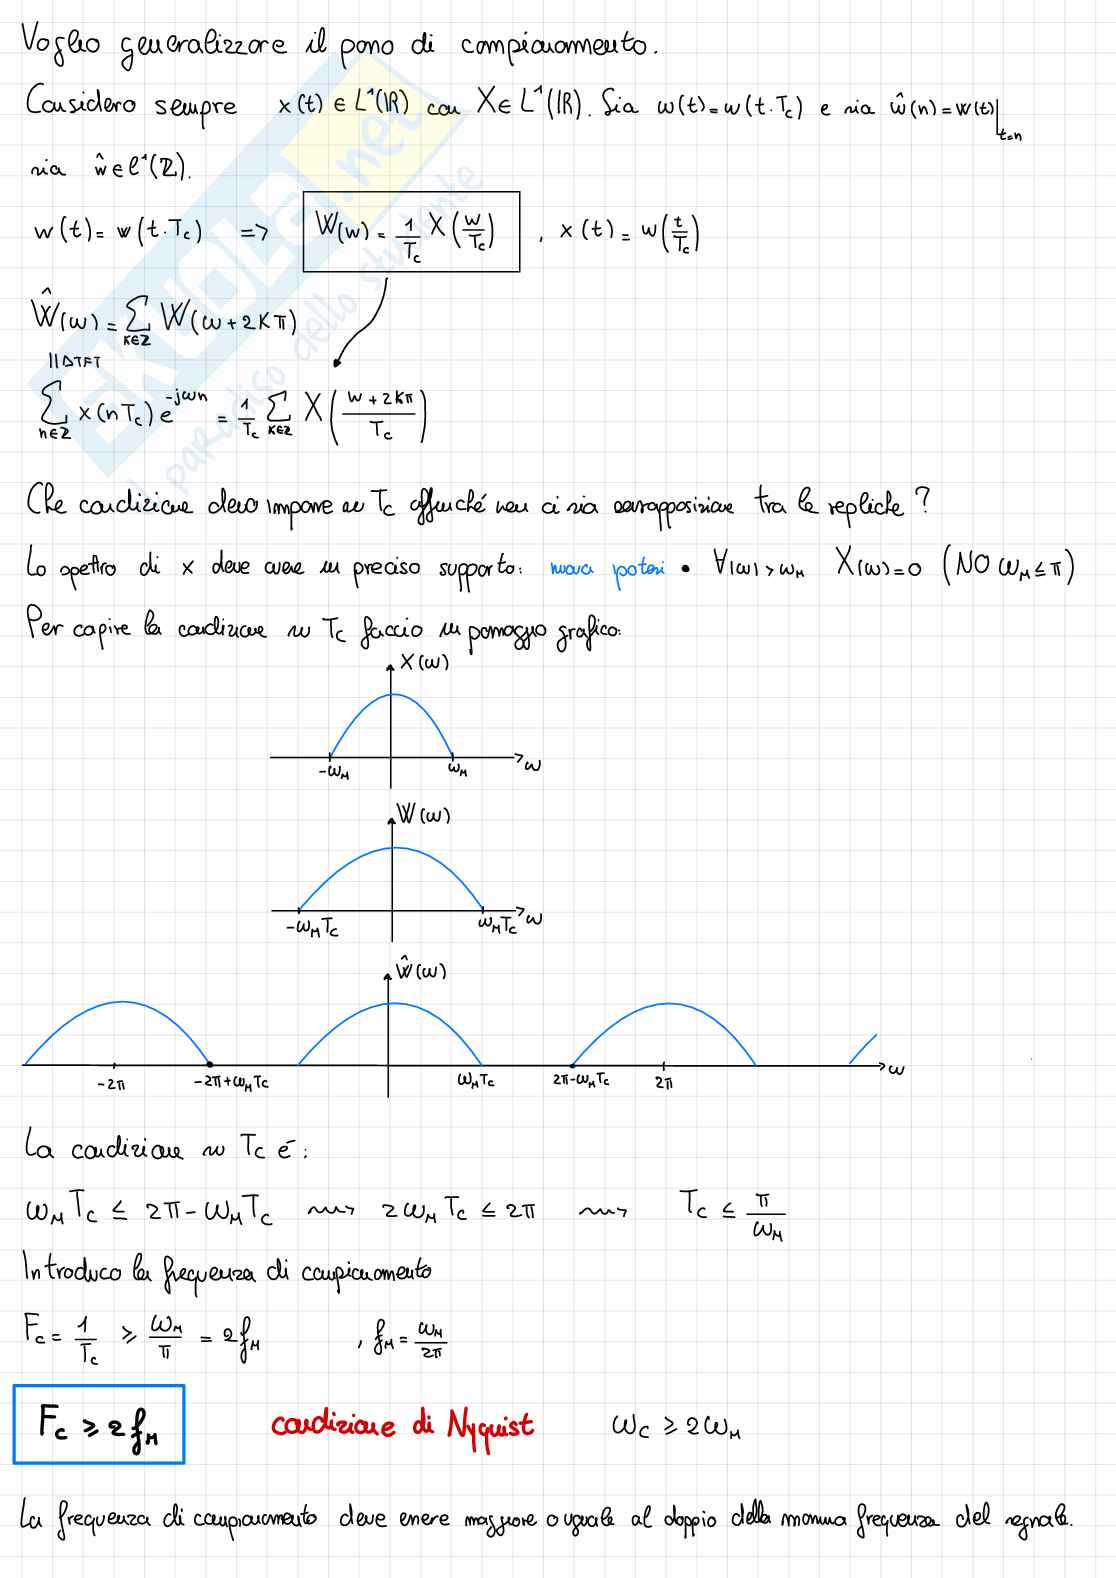 Voglio generalizzare il passo di campionamento.
Considero sempre x(t) ∈ L¹(ℝ) con X ∈ L¹(ℝ). Sia w(t) = w(t·Tc) e sia ŵ(n) = w(t)|t=n
sia ŵ ∈ ℓ¹(ℤ).
w(t) = w(t·Tc) => W(w) = 1/Tc X(w/Tc) , x(t) = w(t/Tc)
Ŵ(ω) = Σ K∈Z W(ω + 2Kπ)
|| DTFT
Σ n∈Z x(nTc) e^-jωn = 1/Tc Σ K∈Z X(w + 2Kπ / Tc)
Che condizione devo imporre su Tc affinché non ci sia sovrapposizione tra le repliche ?
Lo spettro di x deve avere un preciso supporto: nuova ipotesi • ∀|ω| > ωM X(ω) = 0 (NO ωM ≤ π)
Per capire la condizione su Tc faccio un passaggio grafico:
X(ω)
-ωM ωM ω
W(ω)
-ωMTc ωMTc ω
Ŵ(ω)
-2π -2π+ωMTc ωMTc 2π-ωMTc 2π ω
La condizione su Tc é:
ωM Tc ≤ 2π - ωM Tc ⇝ 2ωM Tc ≤ 2π ⇝ Tc ≤ π/ωM
Introduco la frequenza di campionamento
Fc = 1/Tc ≥ ωM/π = 2fM , fM = ωM/2π
Fc ≥ 2fM condizione di Nyquist ωc ≥ 2ωM
La frequenza di campionamento deve essere maggiore o uguale al doppio della massima frequenza del segnale.
SKUOLA.net
il paradiso dello studente